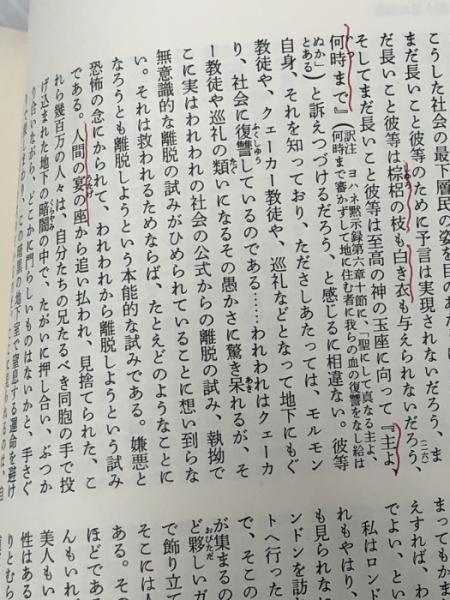 こうした社会の最下層民の姿を目のあた
まだ長いこと彼等のために予言は実現されないだろう、ま
だ長いこと彼等は棕梠の枝も白き衣も与えられないだろう、(二六)
そしてまだ長いこと彼等は至高の神の玉座に向って『主よ、
何時まで』(訳注 ヨハネ黙示録第六章十節に、「聖にして真なる主よ、何時まで審かずして地に住む者に我らの血の復讐をなし給は
ぬか」とある)と訴えつづけるだろう、と感じるに相違ない。彼等
自身、それを知っており、たださしあたっては、モルモン
教徒や、クェーカー教徒や、巡礼などとなって地下にもぐ
り、社会に復讐しているのである……われわれはクェーカ
ー教徒や巡礼の類いになるその愚かさに驚き呆れるが、そ
こに実はわれわれの社会の公式からの離脱の試み、執拗で
無意識的な離脱の試みがひめられていることに想い到らな
い。それは救われるためならば、たとえどのようなことに
なろうとも離脱しようという本能的な試みである。嫌悪と
恐怖の念にかられて、われわれから離脱しようという試み
である。人間の宴の座から追い払われ、見捨てられた、こ
れら幾百万の人々は、自分たちの兄たるべき同胞の手で投
げ込まれた地下の暗闇の中で、たがいに押し合い、ぶつか
り合いながら、どこかに門らしいものはないかと、手さぐ
りで探しまわり、この暗黒の地下室で窒息する運命を避け
まってもかま
えすれば、わ
でよい、とい
私はロンド
れもやはり、
も見られない
ンドンを訪
トへ行った
で、そこの
が集まるの
ど夥しいガ
で飾り立て
そこには人
ある。その
ほどであ
美人もい
んもいれ
性はある
りとむら